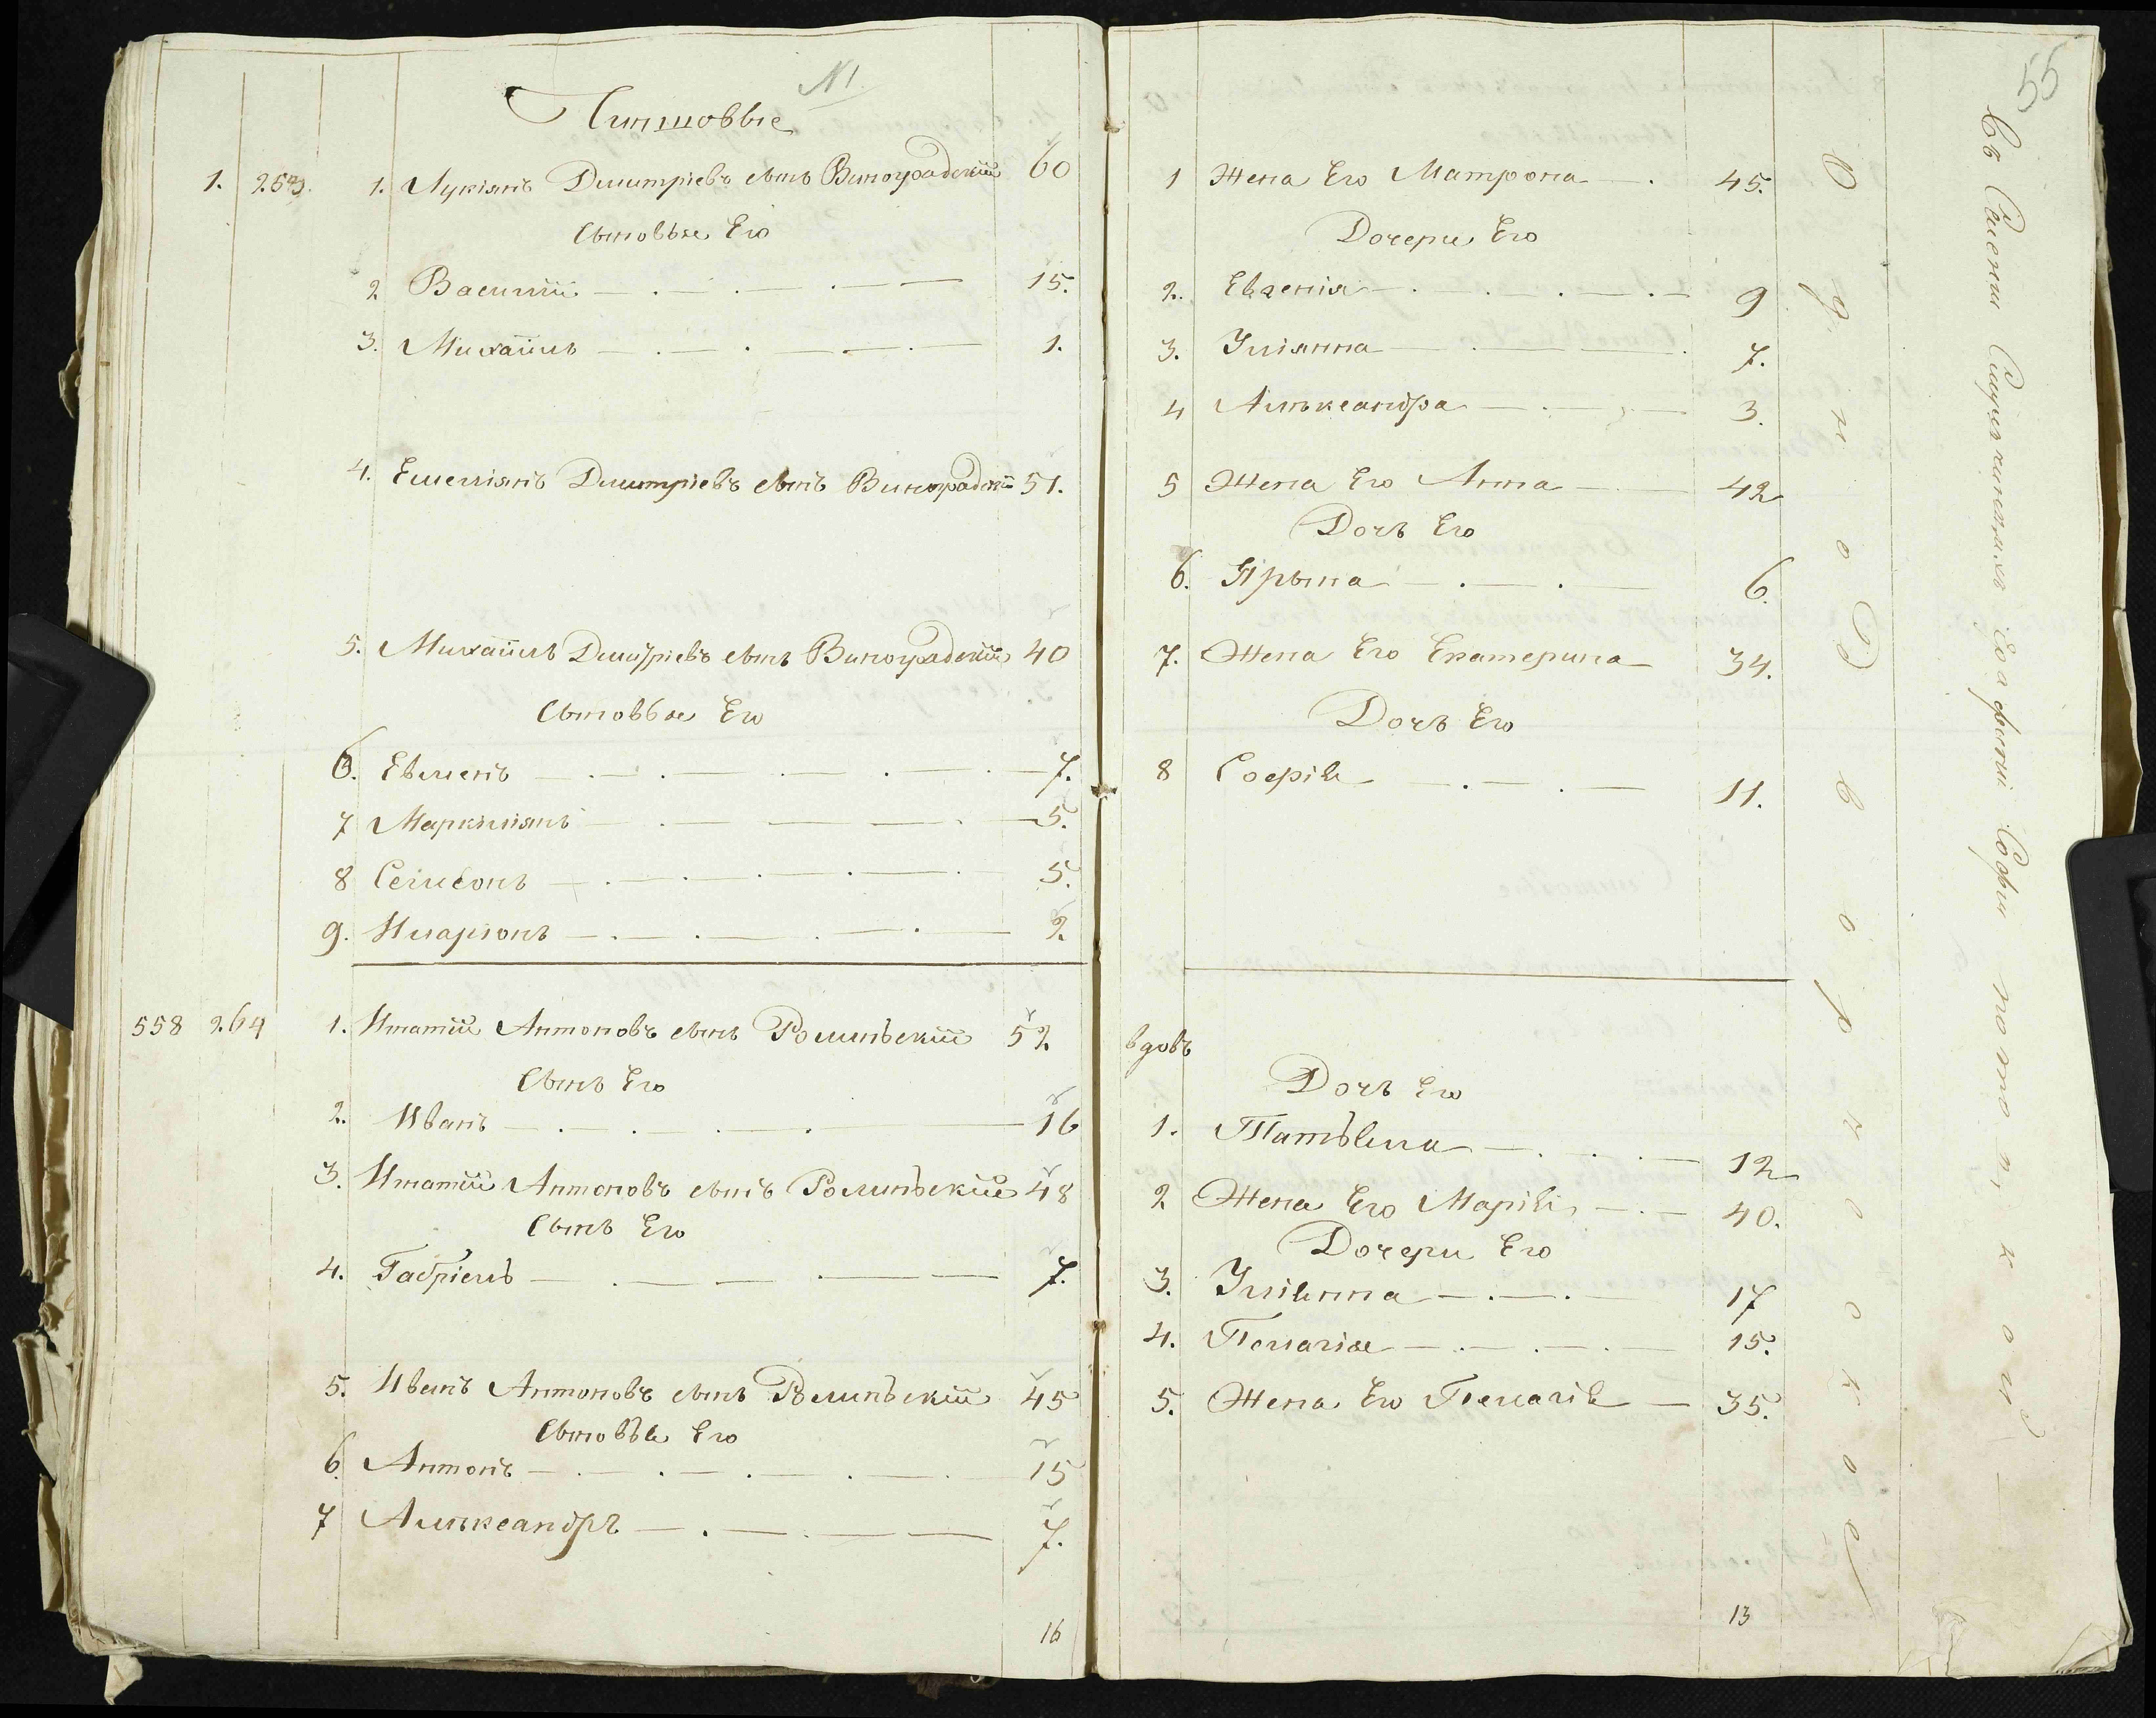 №1
Чиншовые
1. 253. 1. Лукіянъ Дмитріевъ сынъ Виноградскій 60
Сыновья Его
2 Василій 15.
3. Михаилъ 1.
4. Емеліянъ Дмитріевъ сынъ Виноградскій 51.
5. Михаилъ Дмитріевъ сынъ Виноградскій 40
Сыновья Его
6. Евменъ 7.
7 Маркиліянъ 5.
8 Семеонъ 5.
9. Иларіонъ 2.
558 264 1. Игнатій Антоновъ сынъ Ролинъскій 52
Сынъ Его
2. Иванъ 16
3. Игнатій Антоновъ сынъ Ролинъскій 48
Сынъ Его
4. Габріелъ 7.
5. Иванъ Антоновъ сынъ Ролинъскій 45
Сыновья Его
6. Антонъ 15
7 Алъксандръ 7.
16
55
1 Жена Его Матрона 45.
Дочери Его
2. Евгенія 9
3. Уліянна 7.
4 Алъксандра 3.
5 Жена Его Анна 42
Дочъ Его
6. Ярына 6.
7. Жена Его Екатерина 34.
Дочъ Его
8 Софія 11.
вдовъ
Дочъ Его
1. Татъяна 12
2 Жена Его Марія 40.
Дочери Его
3. Уліянна 17
4. Пелагія 15.
5. Жена Его Пелагія 35.
13
Однодворческое
Въ Селени